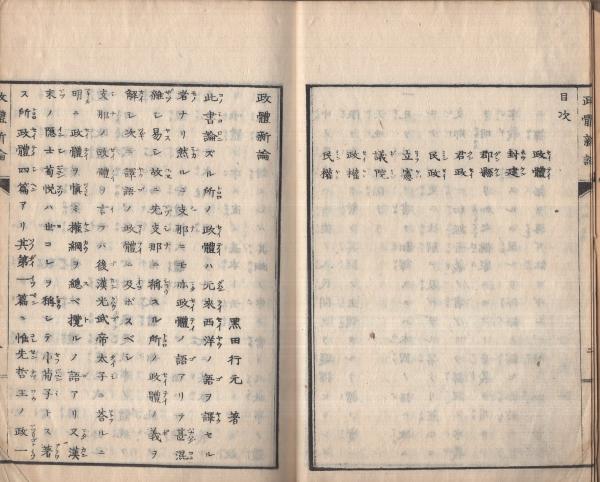 政體新論
目次
政體
封建
郡縣
君政
民政
立憲
議院
政權
民權
政體新論
黑田行元 著
此書論ズル所ノ政體ハ元來西洋ノ語ヲ譯セル
者ナリ然ルニ支那ニモ亦政體ノ語アリテ甚混
雜シ易シ故ニ先支那ニ稱スル所ノ政體ノ義ヲ
解シ次ニ譯語ノ政體ニ及ボスベシ
支那ノ政體ヲ言ラバ後漢光武帝太子ニ荅ルニ
明ニ政體ヲ愼ミ權綱ヲ總べ攬ルノ語アリ又漢
末ノ隱士荀悅ハ世コレヲ稱シテ小荀子トス著
ス所政體四篇アリ其第一篇ニ惟先哲王ノ政一
政體新論